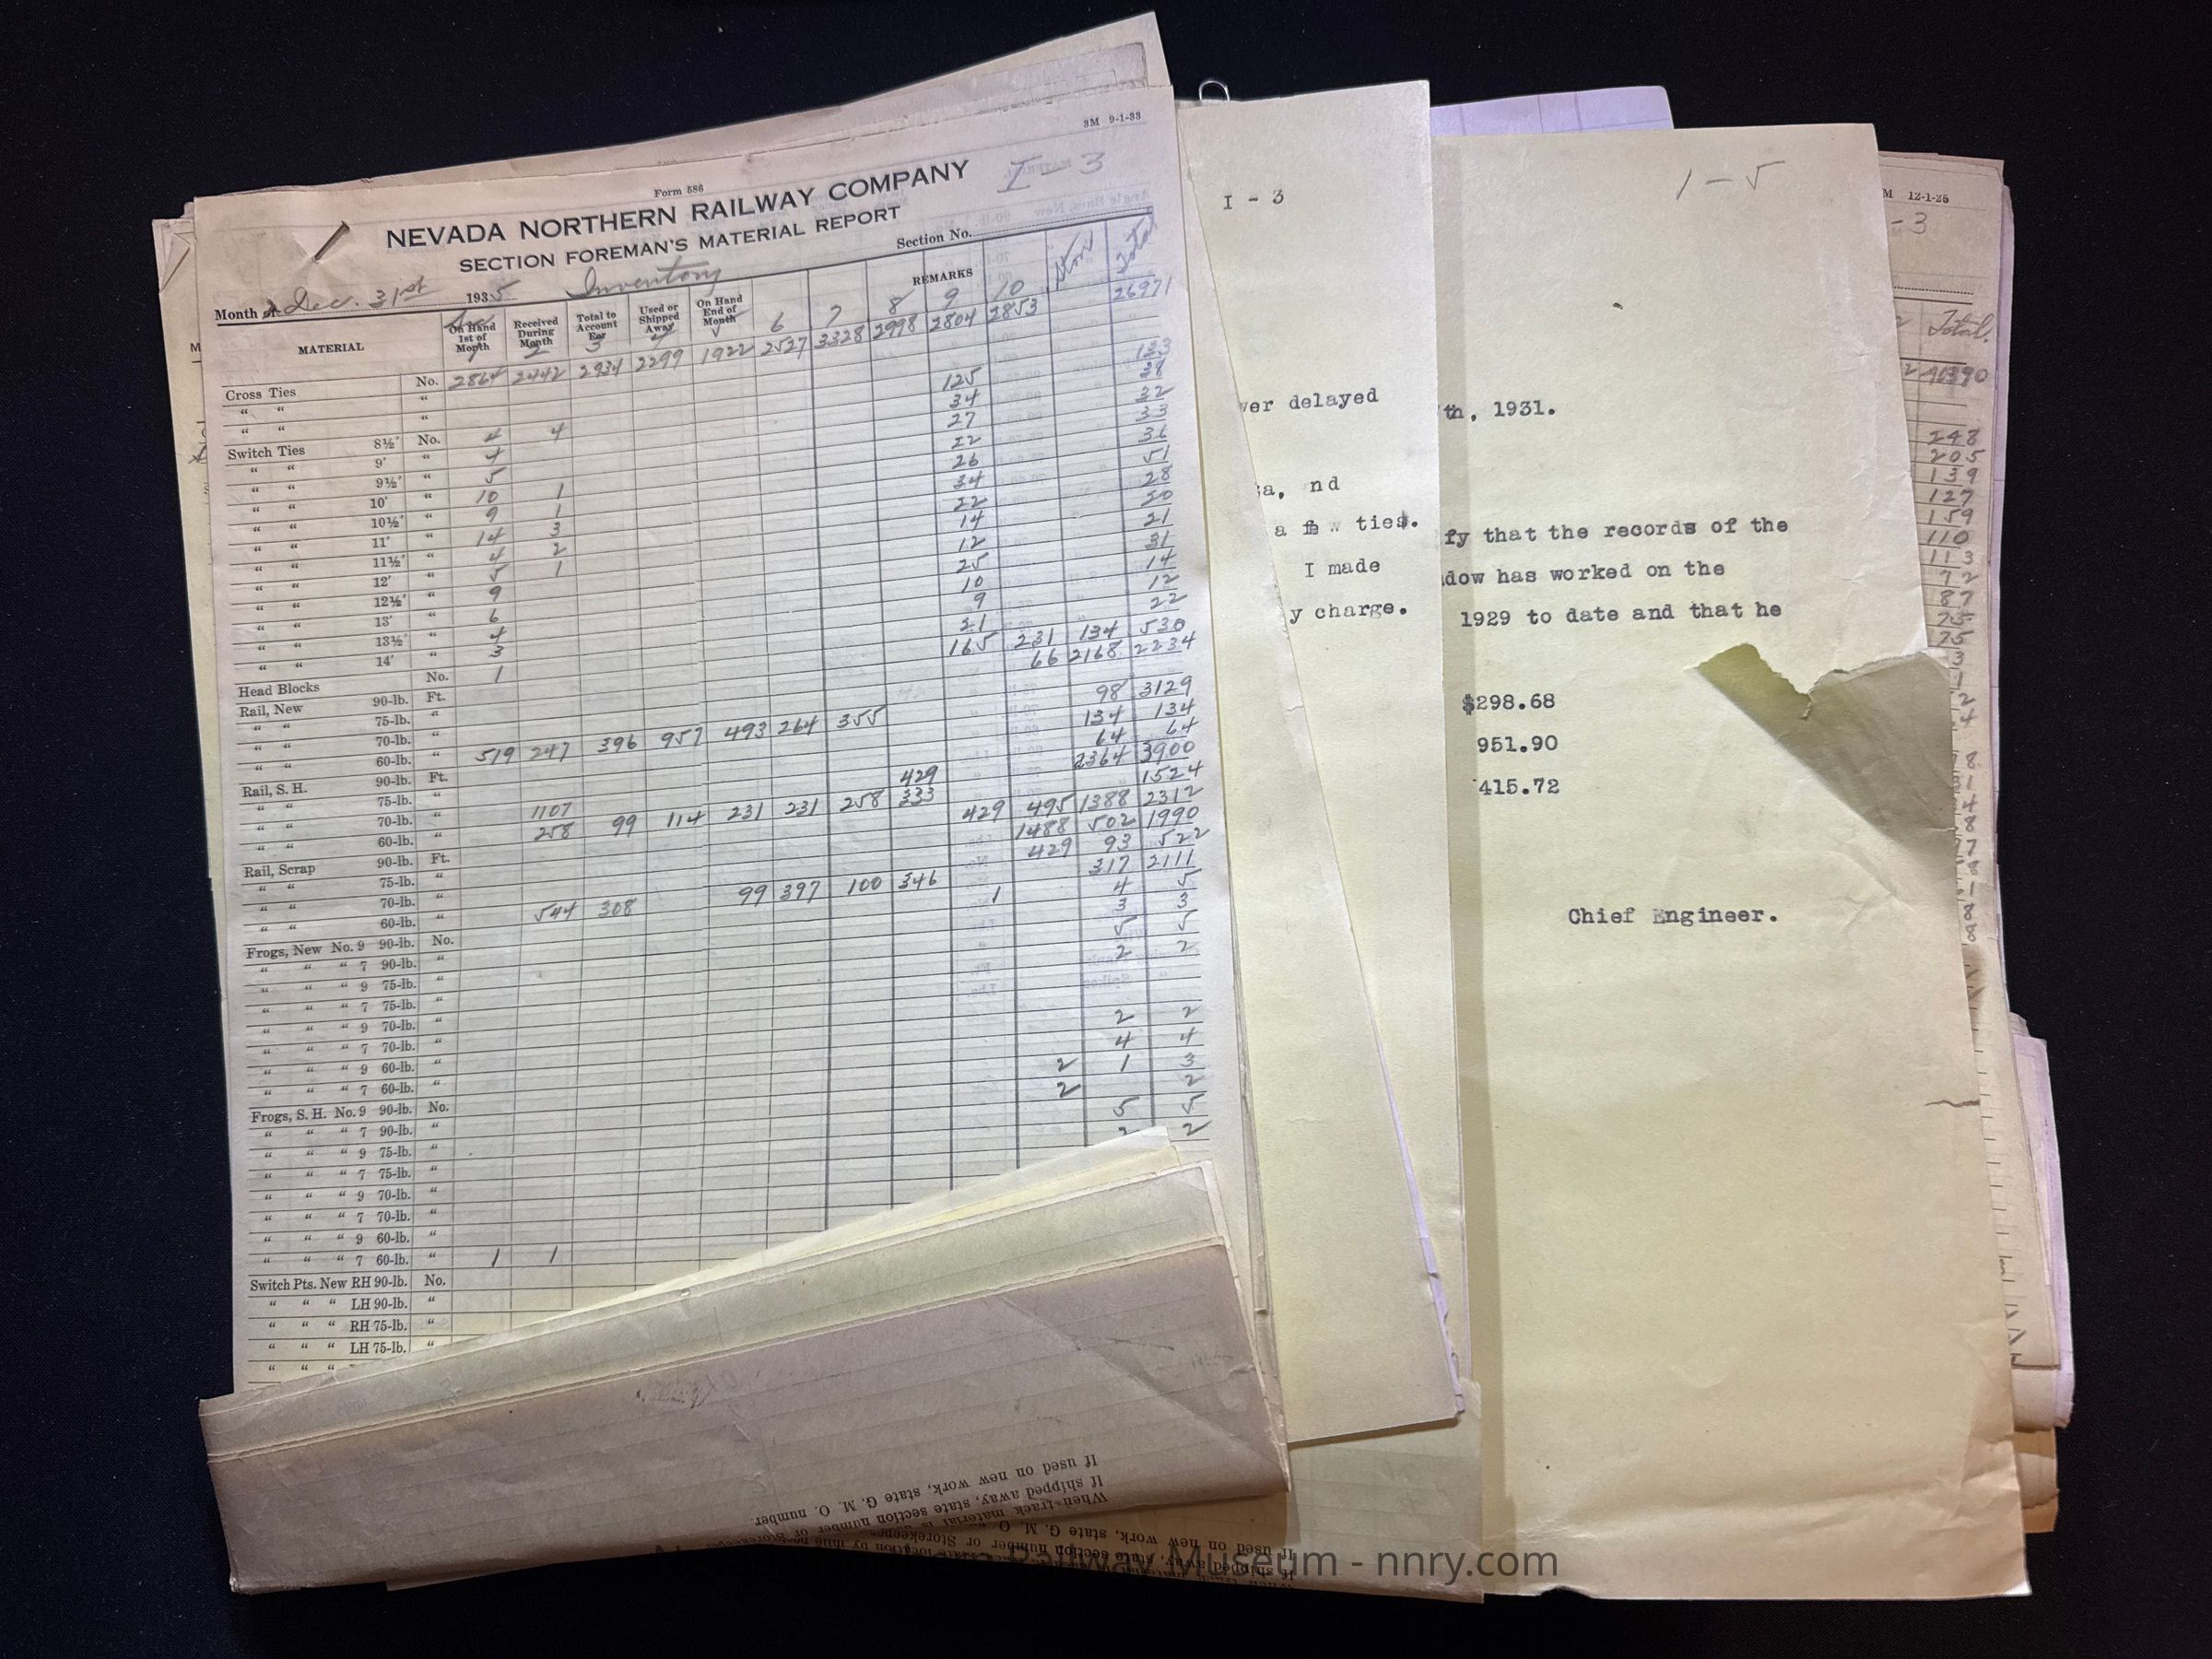 3M 9-1-33
Form 586
I-3
NEVADA NORTHERN RAILWAY COMPANY
SECTION FOREMAN'S MATERIAL REPORT
Section No.
Month of Dec. 31st 1935 Inventory
MATERIAL On Hand 1st of Month Received During Month Total to Account For Used or Shipped Away On Hand End of Month REMARKS
1 2 3 4 5 6 7 8 9 10 Store Total
Cross Ties No. 2864 2442 2934 2299 1922 2527 3328 2998 2804 2853 26971
" " "
" " "
Switch Ties 8½' No. 4 4 125 133
" " 9' " 4 34 38
" " 9½' " 5 27 32
" " 10' " 10 1 22 33
" " 10½' " 9 1 26 36
" " 11' " 14 3 34 51
" " 11½' " 4 2 22 28
" " 12' " 5 1 14 20
" " 12½' " 9 12 21
" " 13' " 6 25 31
" " 13½' " 4 10 14
" " 14' " 3 9 12
Head Blocks No. 1 21 22
Rail, New 90-lb. Ft. 165 231 134 530
" " 75-lb. " 66 2168 2234
" " 70-lb. "
" " 60-lb. " 519 247 396 957 493 264 355 98 3129
Rail, S. H. 90-lb. Ft. 134 134
" " 75-lb. " 64 64
" " 70-lb. " 1107 429 2364 3900
" " 60-lb. " 258 99 114 231 231 258 333 1524
Rail, Scrap 90-lb. Ft. 429 495 1388 2312
" " 75-lb. " 1488 502 1990
" " 70-lb. " 429 93 522
" " 60-lb. " 544 308 99 397 100 346 317 2111
Frogs, New No. 9 90-lb. No. 1 4 5
" " " 7 90-lb. " 3 3
" " " 9 75-lb. " 5 5
" " " 7 75-lb. " 2 2
" " " 9 70-lb. "
" " " 7 70-lb. "
" " " 9 60-lb. " 2 2
" " " 7 60-lb. " 4 4
Frogs, S. H. No. 9 90-lb. No. 2 1 3
" " " 7 90-lb. " 2 2
" " " 9 75-lb. " 5 5
" " " 7 75-lb. " 2 2
" " " 9 70-lb. "
" " " 7 70-lb. "
" " " 9 60-lb. "
" " " 7 60-lb. " 1 1
Switch Pts. New RH 90-lb. No.
" " " LH 90-lb. "
" " " RH 75-lb. "
" " " LH 75-lb. "
" " "
If used on new work, state G. M. O. number.
If shipped away, state section number or
When track material is
I - 3
ver delayed
nd
a few ties.
I made
y charge.
1-5
th, 1931.
fy that the records of the
dow has worked on the
1929 to date and that he
$298.68
951.90
415.72
Chief Engineer.
M 12-1-25
-3
Total
40390
248
205
139
127
159
110
113
72
87
75
75
Railway Museum - nnry.com